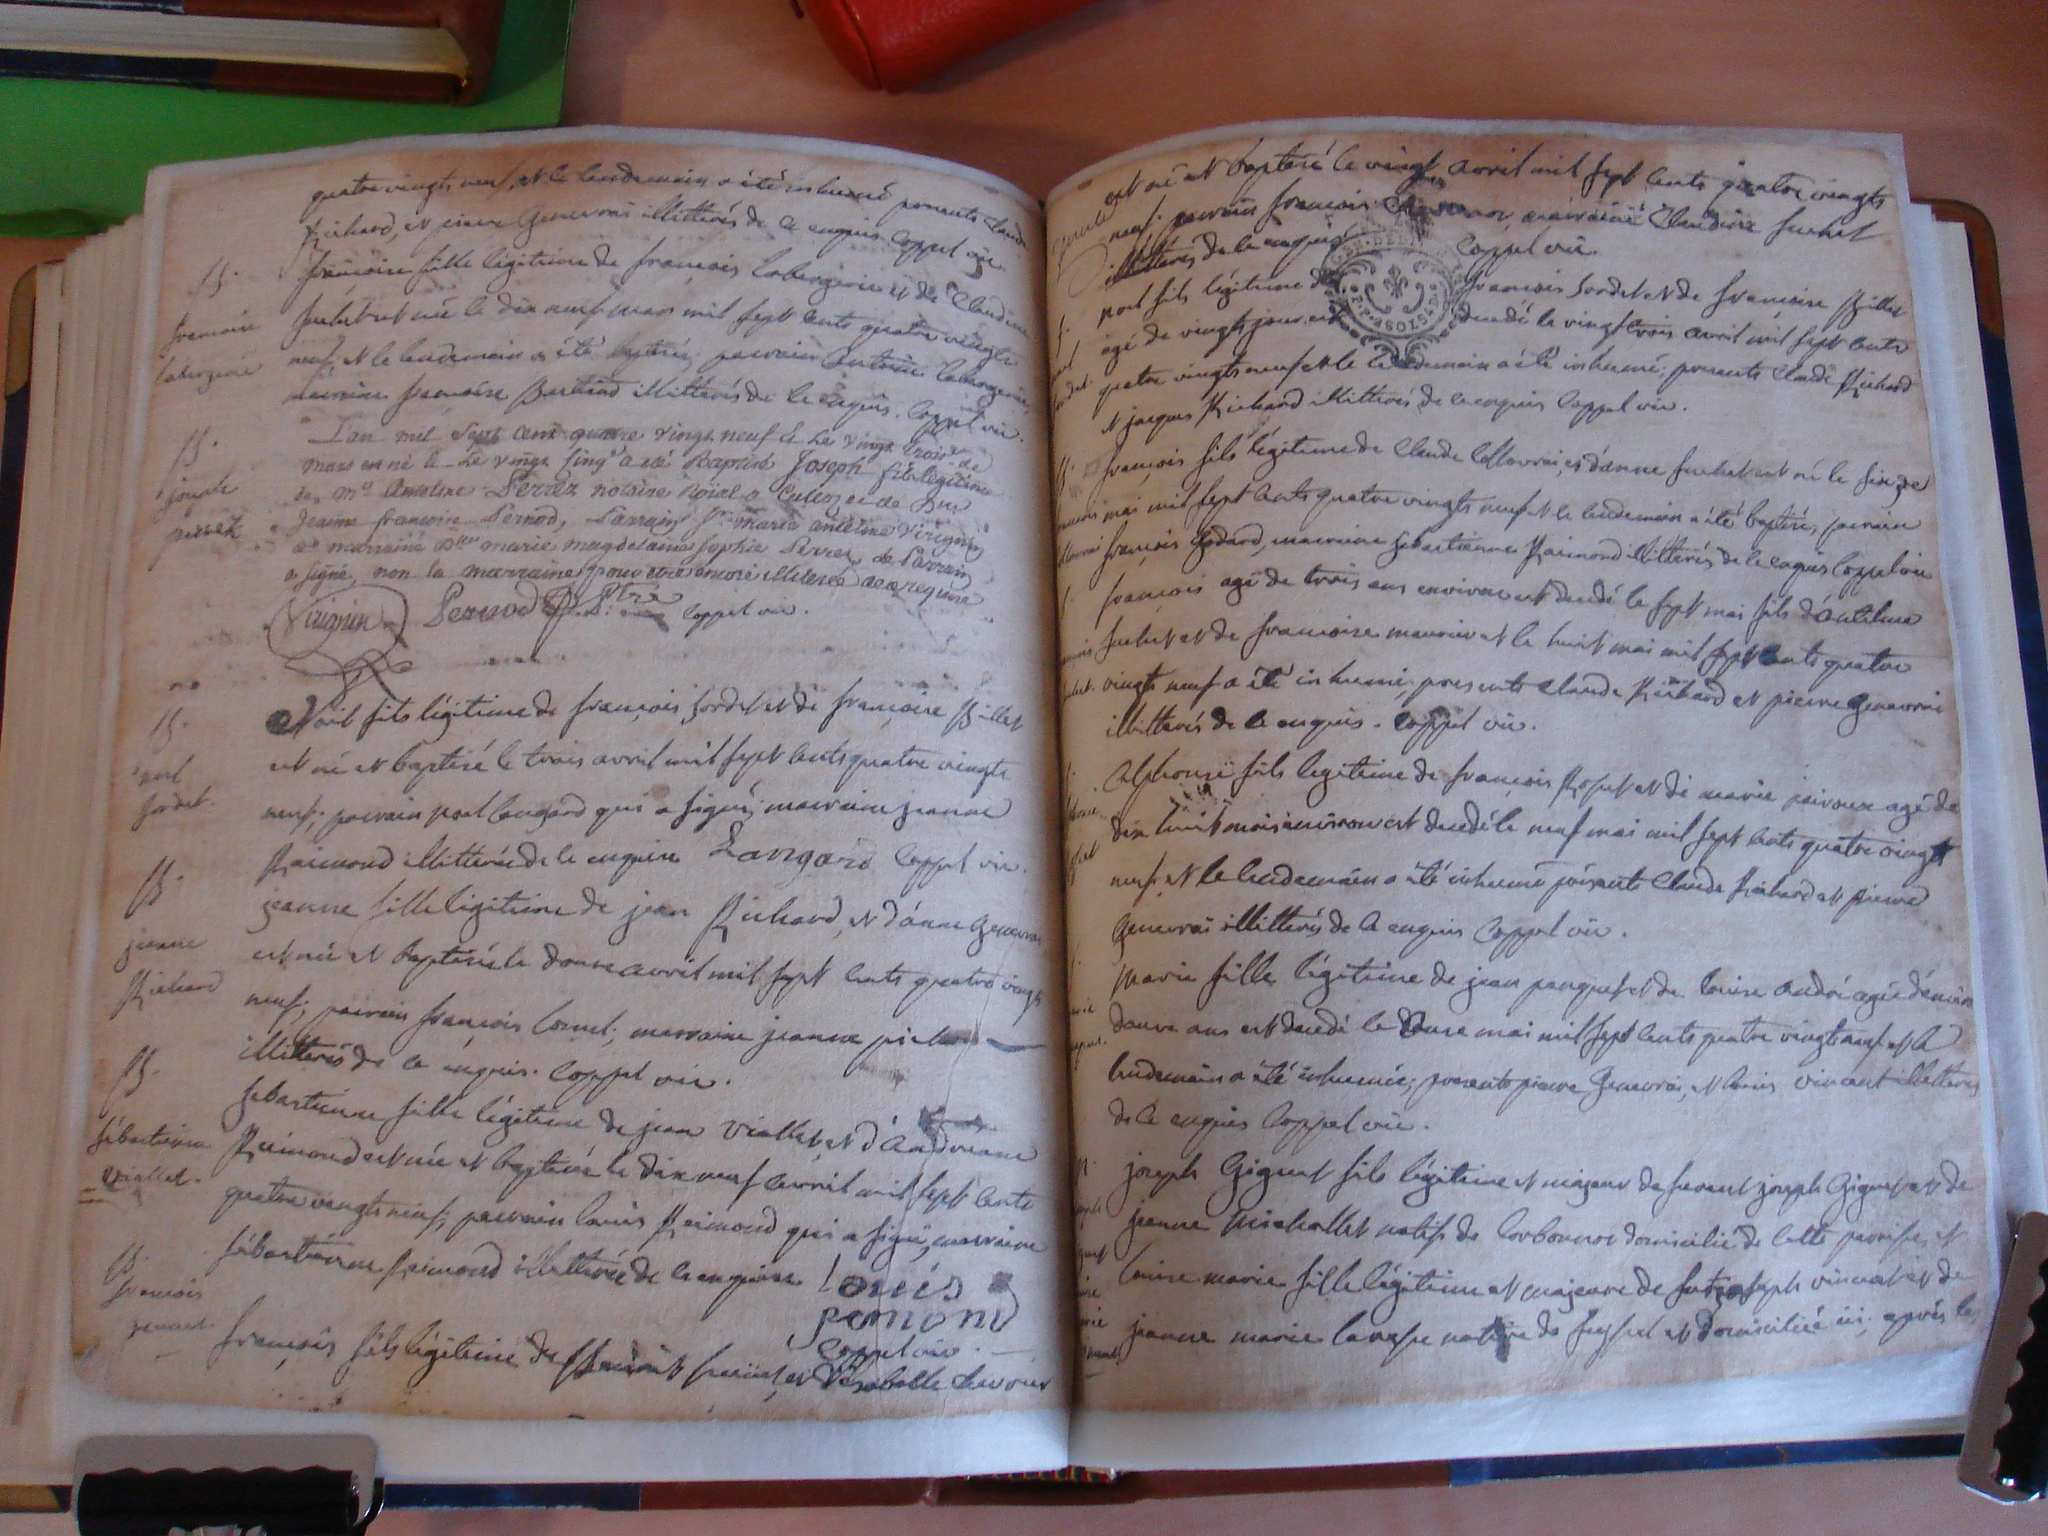 quatre vingts neuf, et le lendemain a été inhumé présents Claude
Richard, et pierre Genevrai illitterés de ce enquis Coppel vic.
françoise fille légitime de françois labergerie et de Claudine
suchet est née le dix neuf mars mil sept cents quatre vingts
neuf, et le lendemain a été baptisée; parrain antoine labergerie
marraine françoise illitterés de ce enquis. Coppel vic.
françoise
labergerie
L'an mil sept cent quatre vingt neuf & le vingt trois de
mars est né & le vingt cinq a été Baptisé Joseph fils légitime
de Me Antelme Perret notaire Roial a et de
Jeanne françoise Pernod, Parrain Sr marie antelme Virignin
et marraine Dlle marie magdelaine sophie Perret, le Parrain
a signé, non la marraine pour etre encore illiterée de ce requise
joseph
perret
Virignin Pernod Ptre Coppel vic.
Noël fils légitime de françois sordet et de françoise Billet
est né et baptisé le trois avril mil sept cents quatre vingts
neuf; parrain noël Langard qui a signé; marraine jeanne
Raimond illitterée de ce enquise Langard Coppel vic.
noel
sordet.
jeanne fille légitime de jean Richard, et d'anne Genevrai
est née et baptisée le douze avril mil sept cents quatre vingts
neuf; parrain françois Cornet; marraine jeanne
illitterés de ce enquis. Coppel vic.
jeanne
Richard
sebastienne fille légitime de jean Viallet et d'Andréanne
Raimond est née et baptisée le dix neuf avril mil sept cents
quatre vingts neuf; parrain Louis Raimond qui a signé, marraine
sébastienne Raimond illitterée de ce enquise Louis
remond
Coppel vic.
sébastienne
viallet.
françois
françois fils légitime de et d'Isabelle
est né et baptisé le vingt avril mil sept cents quatre vingts
neuf parrain françois marraine Claudine suchet
illitterés de ce enquis Coppel vic.
noel fils légitime de françois sordet et de françoise Billet
agé de vingts jours est decedé le vingt trois avril mil sept cents
quatre vingts neuf et le lendemain a été inhumé; presents Claude Richard
et jacques Richard illitterés de ce enquis Coppel vic.
françois fils légitime de Claude et d'anne suchet est né le six de
mai mil sept cents quatre vingts neuf et le lendemain a été baptisé, parrain
françois Godard, marraine sebastienne Raimond illitterés de ce enquis Coppel vic
françois agé de trois ans environ est decedé le sept mai fils d'antelme
suchet et de françoise meunier et le huit mai mil sept cents quatre
vingts neuf a été inhumé; presents Claude Richard et pierre Genevrai
illitterés de ce enquis. Coppel vic.
Alphonse fils légitime de françois Rosset et de marie agé de
dix huit mois environ est decedé le neuf mai mil sept cents quatre vingt
neuf, et le lendemain a été inhumé présents Claude Richard et pierre
Genevrai illitterés de ce enquis Coppel vic.
Marie fille légitime de jean et de Louise André agée d'environ
douze ans est decedé le mai mil sept cents quatre vingts neuf et le
lendemain a été inhumée; presents pierre Genevrai, et Louis vincent illitterés
de ce enquis Coppel vic.
joseph Giguet fils légitime et majeur de feu joseph Giguet et de
jeanne Michallet natif de Corbonod domicilié de cette paroisse, et
Louise marie fille légitime et majeure de feu joseph vincent et de
jeanne marie native de seyssel et domiciliée ici, après le